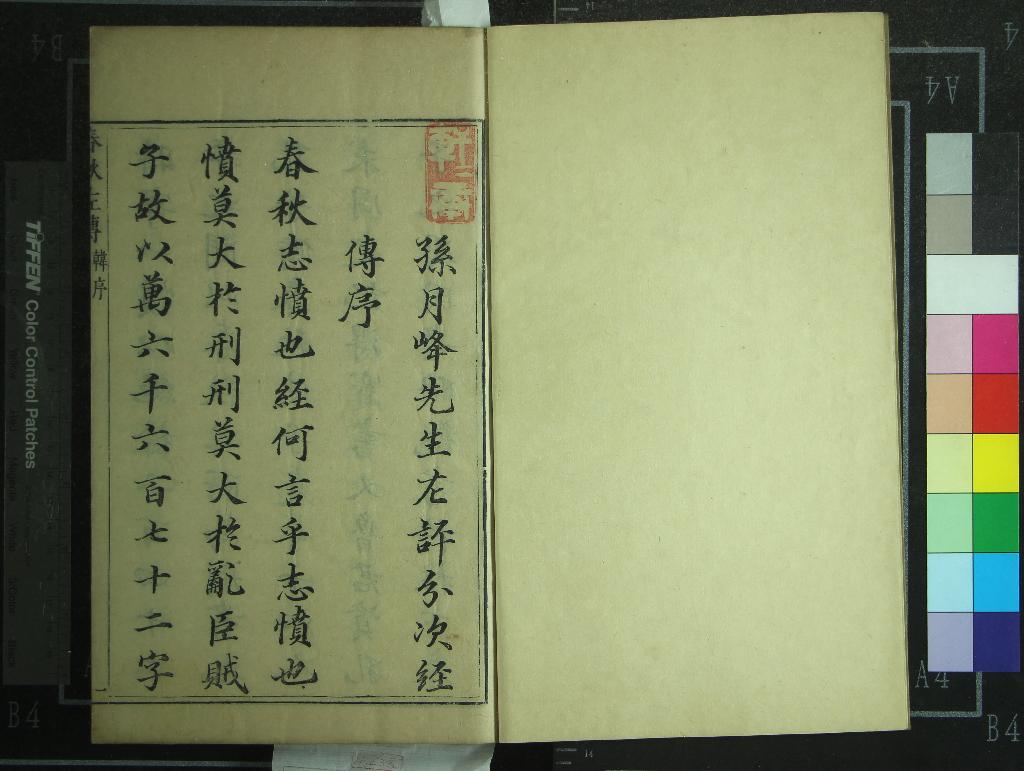 孫月峰先生左評分次經
傳序
春秋志憤也経何言乎志憤也
憤莫大於刑刑莫大於亂臣賊
子故以萬六千六百七十二字
春秋左傳 韓序
TIFFEN Color Control Patches
B4
A4
A4
B4
B4
4
14